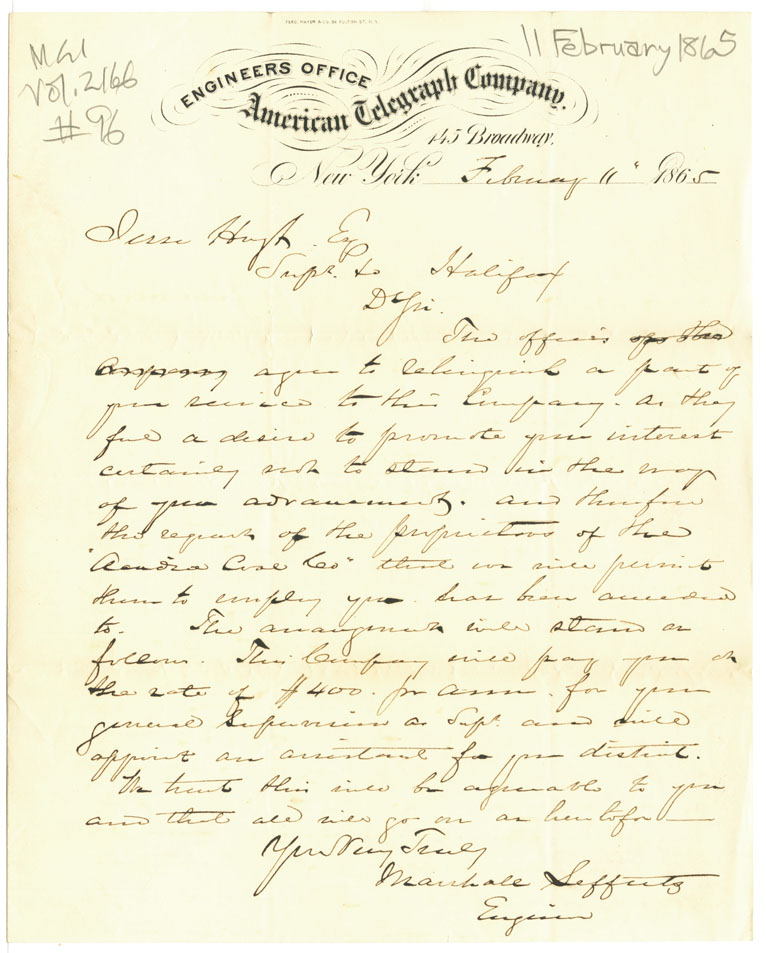 FERD. MAYER & CO. 96 FULTON ST. N.Y.
11 February 1865
MG1
Vol. 2166
#96
ENGINEERS OFFICE
American Telegraph Company.
145 Broadway.
New York February 11" 1865
Jesse Hoyt Esq
Supt. to Halifax
D Sir.
The officers of the
Company agree to relinquish a part of
your service to this Company. As they
feel a desire to promote your interest
certainly not to stand in the way
of your advancement. and therefore
the request of the proprietors of the
"Acadia Coal Co" that we will permit
them to employ you. has been acceded
to. The arrangement will stand as
follows. This Company will pay you at
the rate of $400. pr annm. for your
general Supervision as Supt. and will
appoint an assistant for your district.
We trust this will be agreeable to you
and that all will go on as heretofore
Yours Very Truly
Marshall Lefferts
Engineer